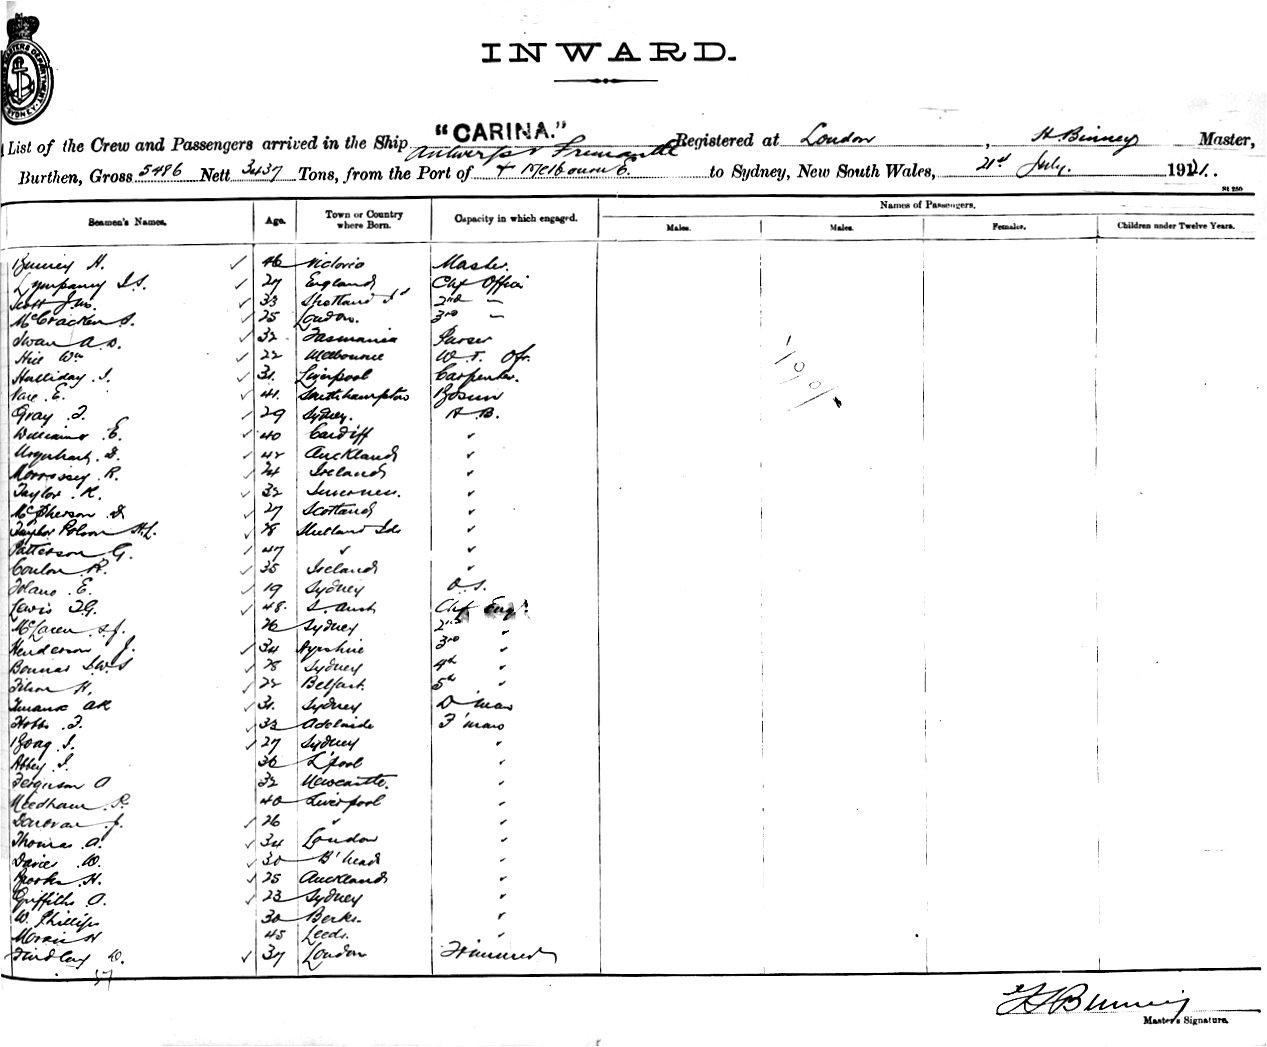 INWARD.
"CARINA."
List of the Crew and Passengers arrived in the Ship Antwerp Fremantle Registered at London, H Binney Master,
Burthen, Gross 5486 Nett 3437 Tons, from the Port of + Melbourne to Sydney, New South Wales, 21st July. 1921.
St 250
Seamen's Names. Age. Town or Country where Born. Capacity in which engaged. Names of Passengers.
Males. Males. Females. Children under Twelve Years.
Binney H. ✓ 46 Victoria Master.
Lympany ✓ 27 England Chf Officer
Scott Jno. ✓ 33 2nd —
McCracken S. ✓ 25 London. 3rd —
Swan A. D. ✓ 32 Tasmania Purser
Hill Wm ✓ 22 Melbourne W. T. Ofr.
Halliday J. ✓ 31. Liverpool Carpenter.
E. ✓ 41. Southhampton Bosun
Gray J. ✓ 29 Sydney. A B.
Williams E. ✓ 40 Cardiff ✓
Urquhart D. ✓ 42 Auckland ✓
Morrissey R. ✓ 24 Ireland ✓
Taylor R. ✓ 32 ✓
McPherson D ✓ 27 Scotland ✓
Taylor Polson H.L. ✓ 28 Shetland Ids ✓
Patterson G. ✓ 47 ✓ ✓
Conlon R. ✓ 35 Ireland ✓
E. ✓ 19 Sydney O. S.
Lewis ✓ 48. S. Aust Chf Engr
McLaren S.J. 26 Sydney 2nd ✓
Henderson J. ✓ 34 Ayrshire 3rd ✓
Bonnar ✓ 28 Sydney 4th ✓
Filson H. ✓ 22 Belfast. 5th ✓
AR ✓ 31. Sydney D'man
Hobbs J. ✓ 32 Adelaide F'man
Boag J. ✓ 27 Sydney ✓
Abbey J. 36 L'pool ✓
Ferguson A 32 Newcastle. ✓
Needham P. 40 Liverpool ✓
Donovan J. ✓ 26 ✓ ✓
Thomas A. ✓ 34 London ✓
Davies W. ✓ 30 B'head ✓
Brooks H. ✓ 25 Auckland ✓
Griffiths A. ✓ 23 Sydney ✓
W. Phillips 30 Berks. ✓
Morris H 45 Leeds. ✓
Findlay W. ✓ 37 London Trimmer
37
H Binney
Master's Signature.